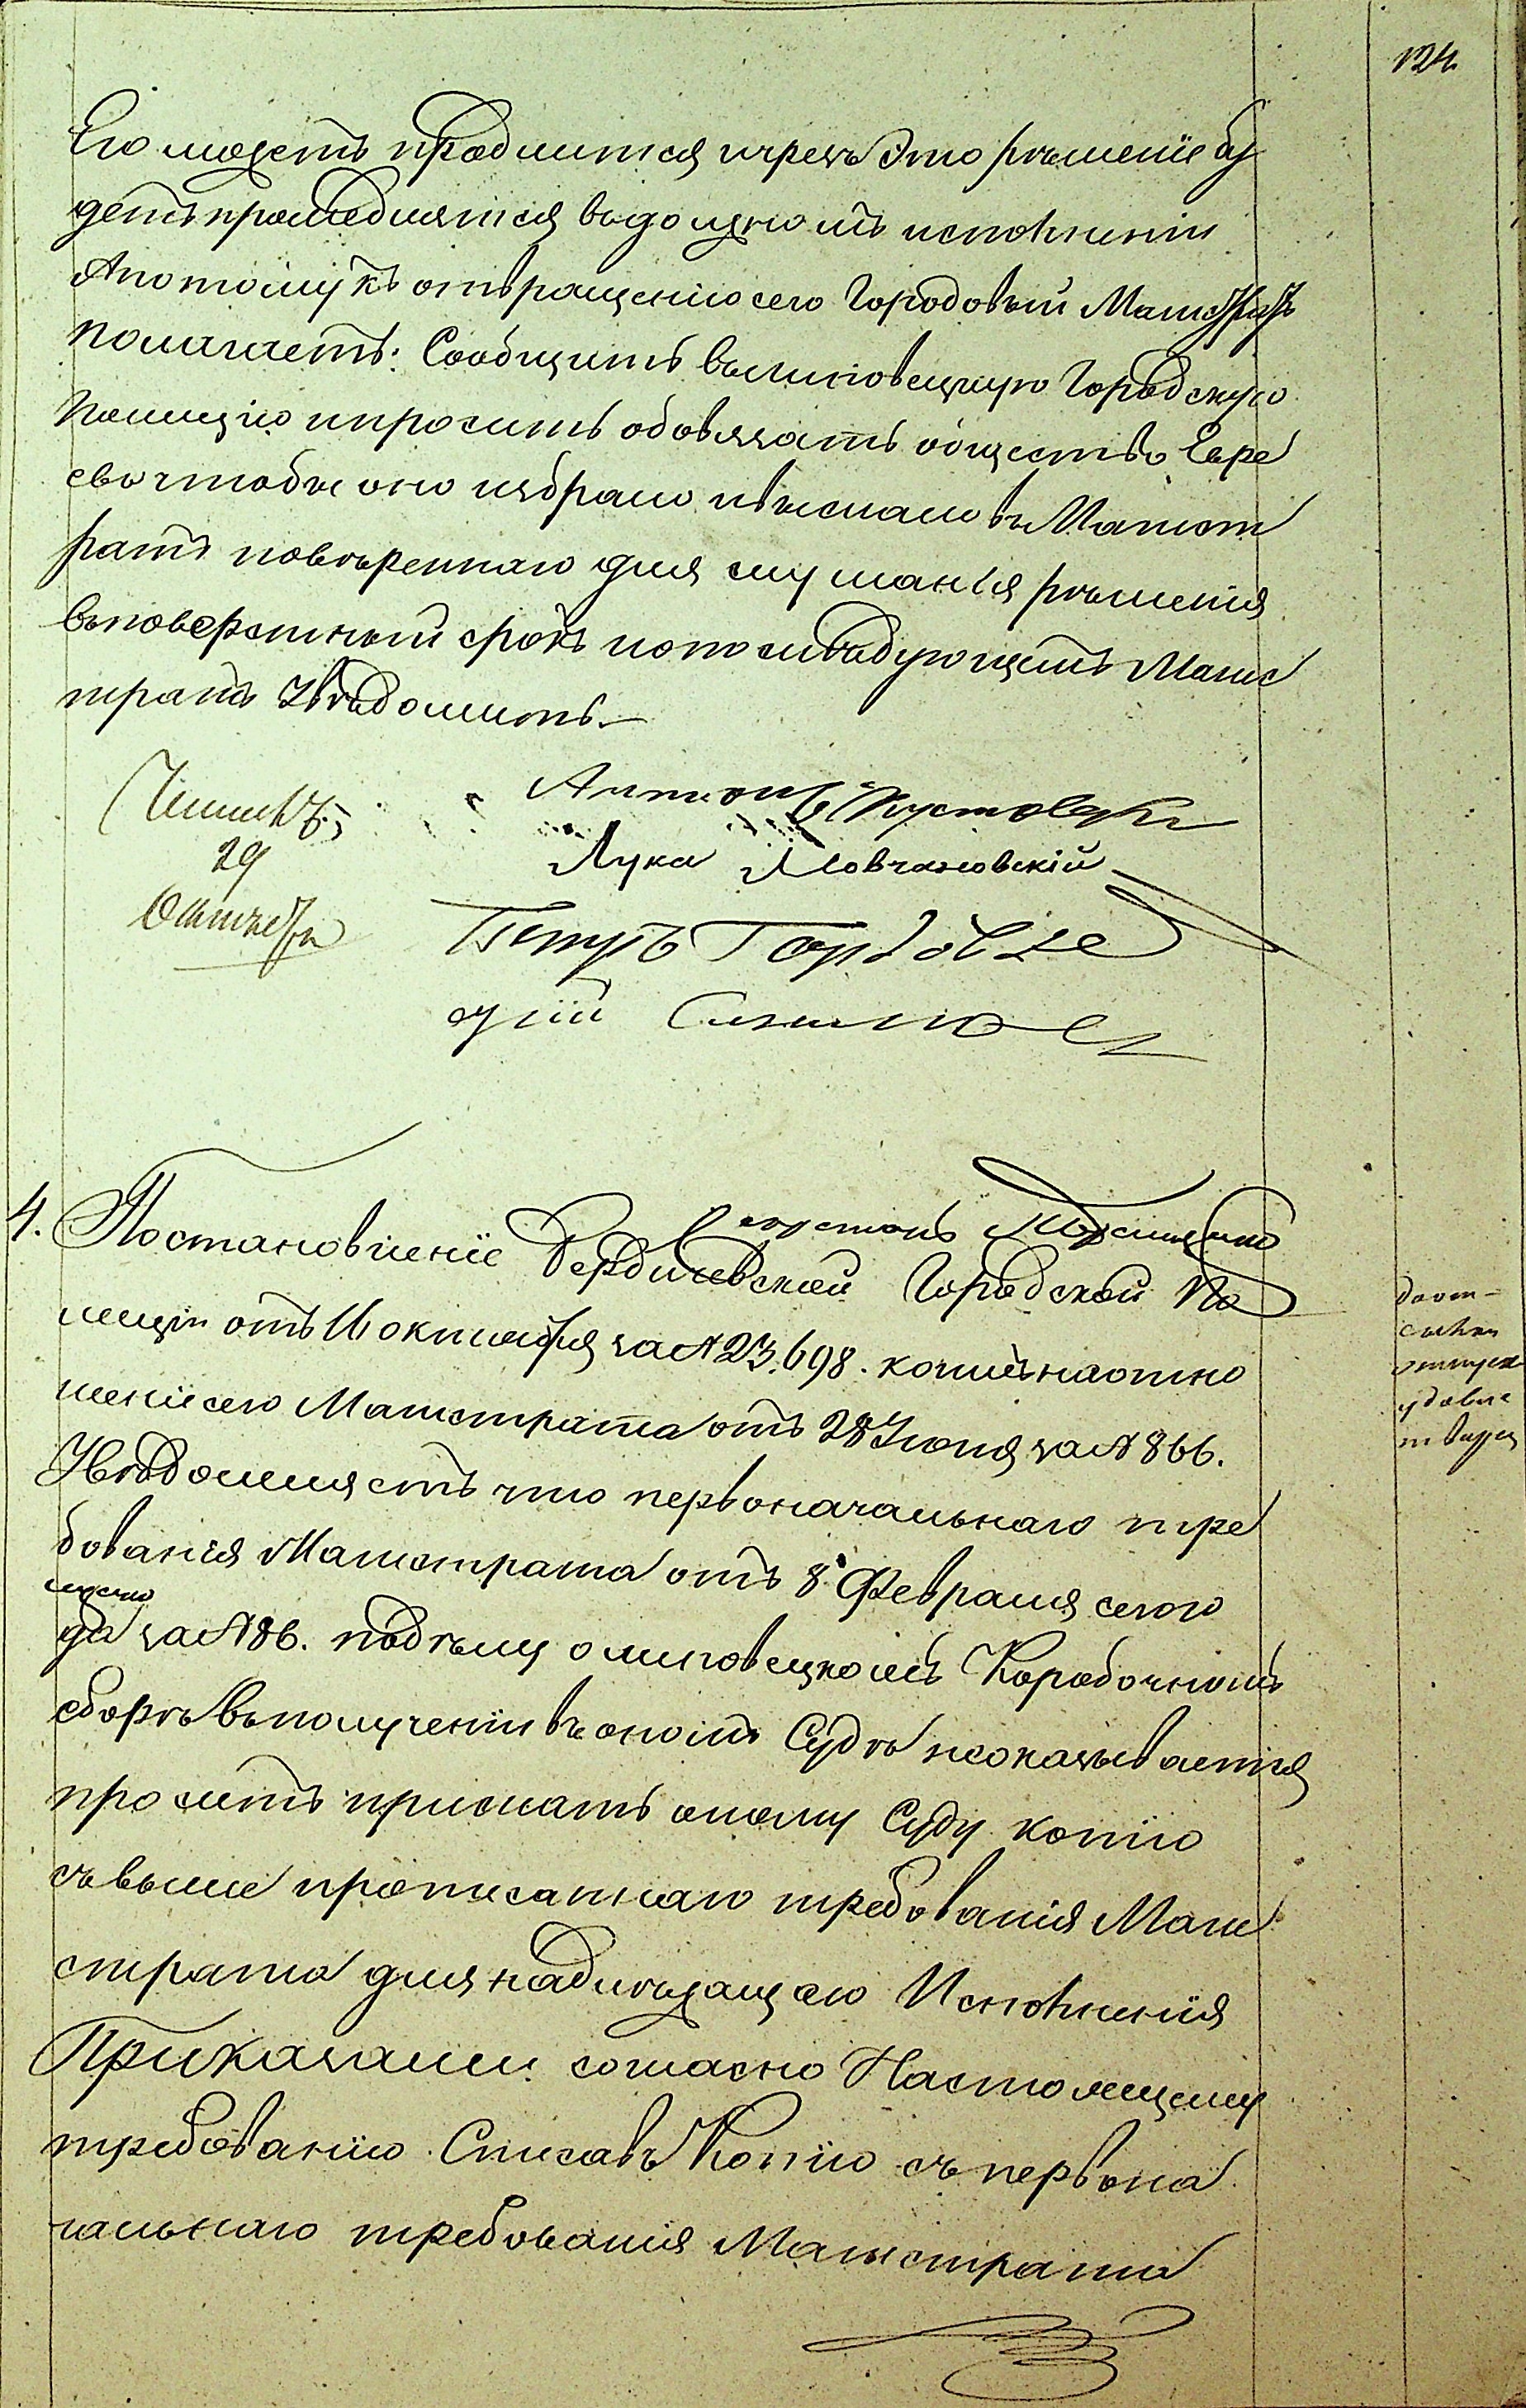 124.
Его можетъ продлится чрезъ Это рѣшеніе бу
детъ промедлятся въ должномъ исполненіи
А потому къ отвращенію сего Городовый Магистратъ
полагаетъ: Сообщить въ Липовецкую Городскую
полицію и просить обовязать общество Евре
евъ чтобы оно избрало и выслало въ Магист
ратъ повѣреннаго для слушанія рѣшенія
въ поверстный срокъ и о послѣдующемъ Магис
тратъ Увѣдомить.
29
Октября
Антонъ
Лука Мовчановскій
Петръ
4. Постановленіе Бердичевской Городской По
лиціи отъ 16 октября за № 23.698. коимъ на отно
шеніе сего Магистрата отъ 28 Іюня за № 866.
Увѣдомляетъ что первоначальнаго тре
бованія Магистрата отъ 8 Февраля сего го
да за № 86. по дѣлу о липовецкомъ Коробочномъ
сборѣ въ полученіи въ ономъ Судѣ неоказывается
проситъ прислать оному Суду копію
съ выше прописаннаго требованія Маги
страта для надлежащаго Исполненія
Приказали: согласно Настоящему
требованію Списавъ Копію съ первона
чальнаго требованія Магистрата